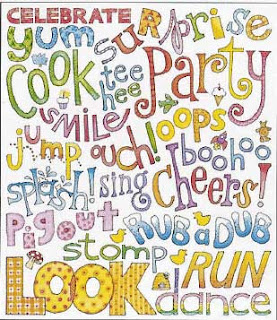 CELEBRATE
yum surprise
cook tee hee Party
smile oops
jump ouch! boohoo
splash! sing Cheers!
pig out RUB a DUB
stomp RUN
LOOK dance